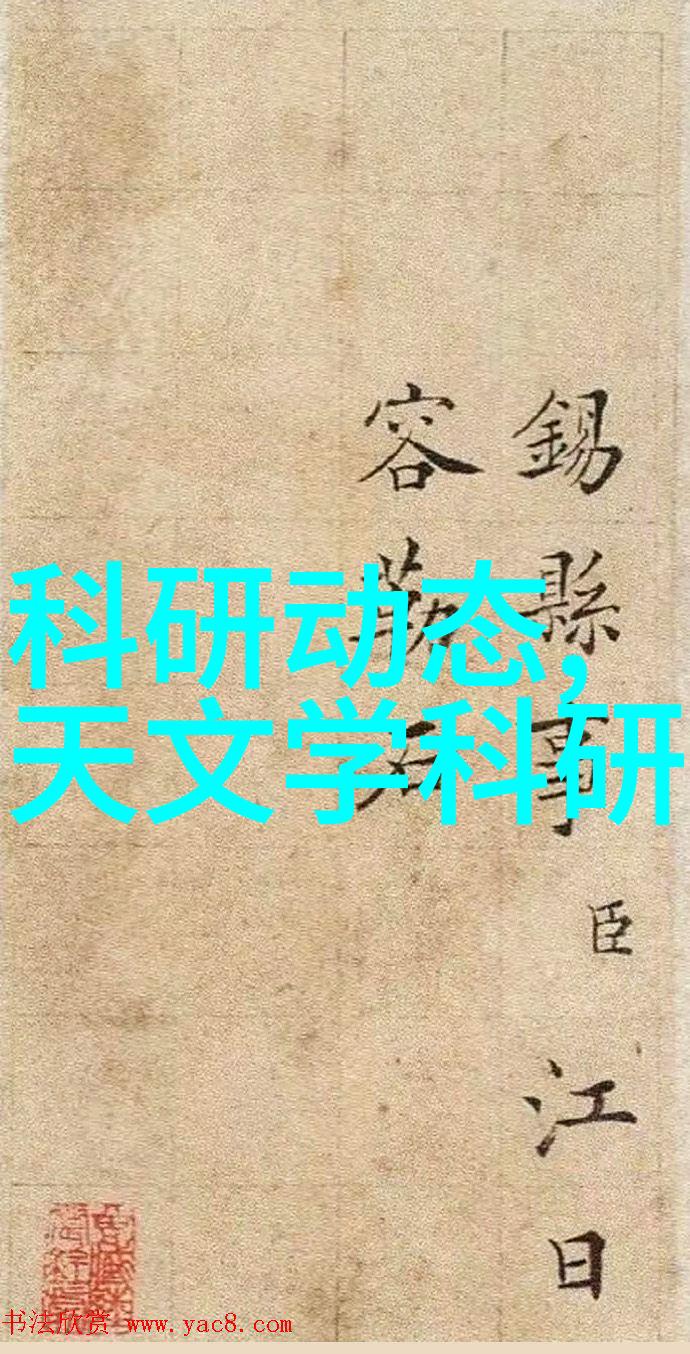 錫縣事臣江日
容勒石
科研动态,
天文学科研
书法欣赏 www.yac8.com